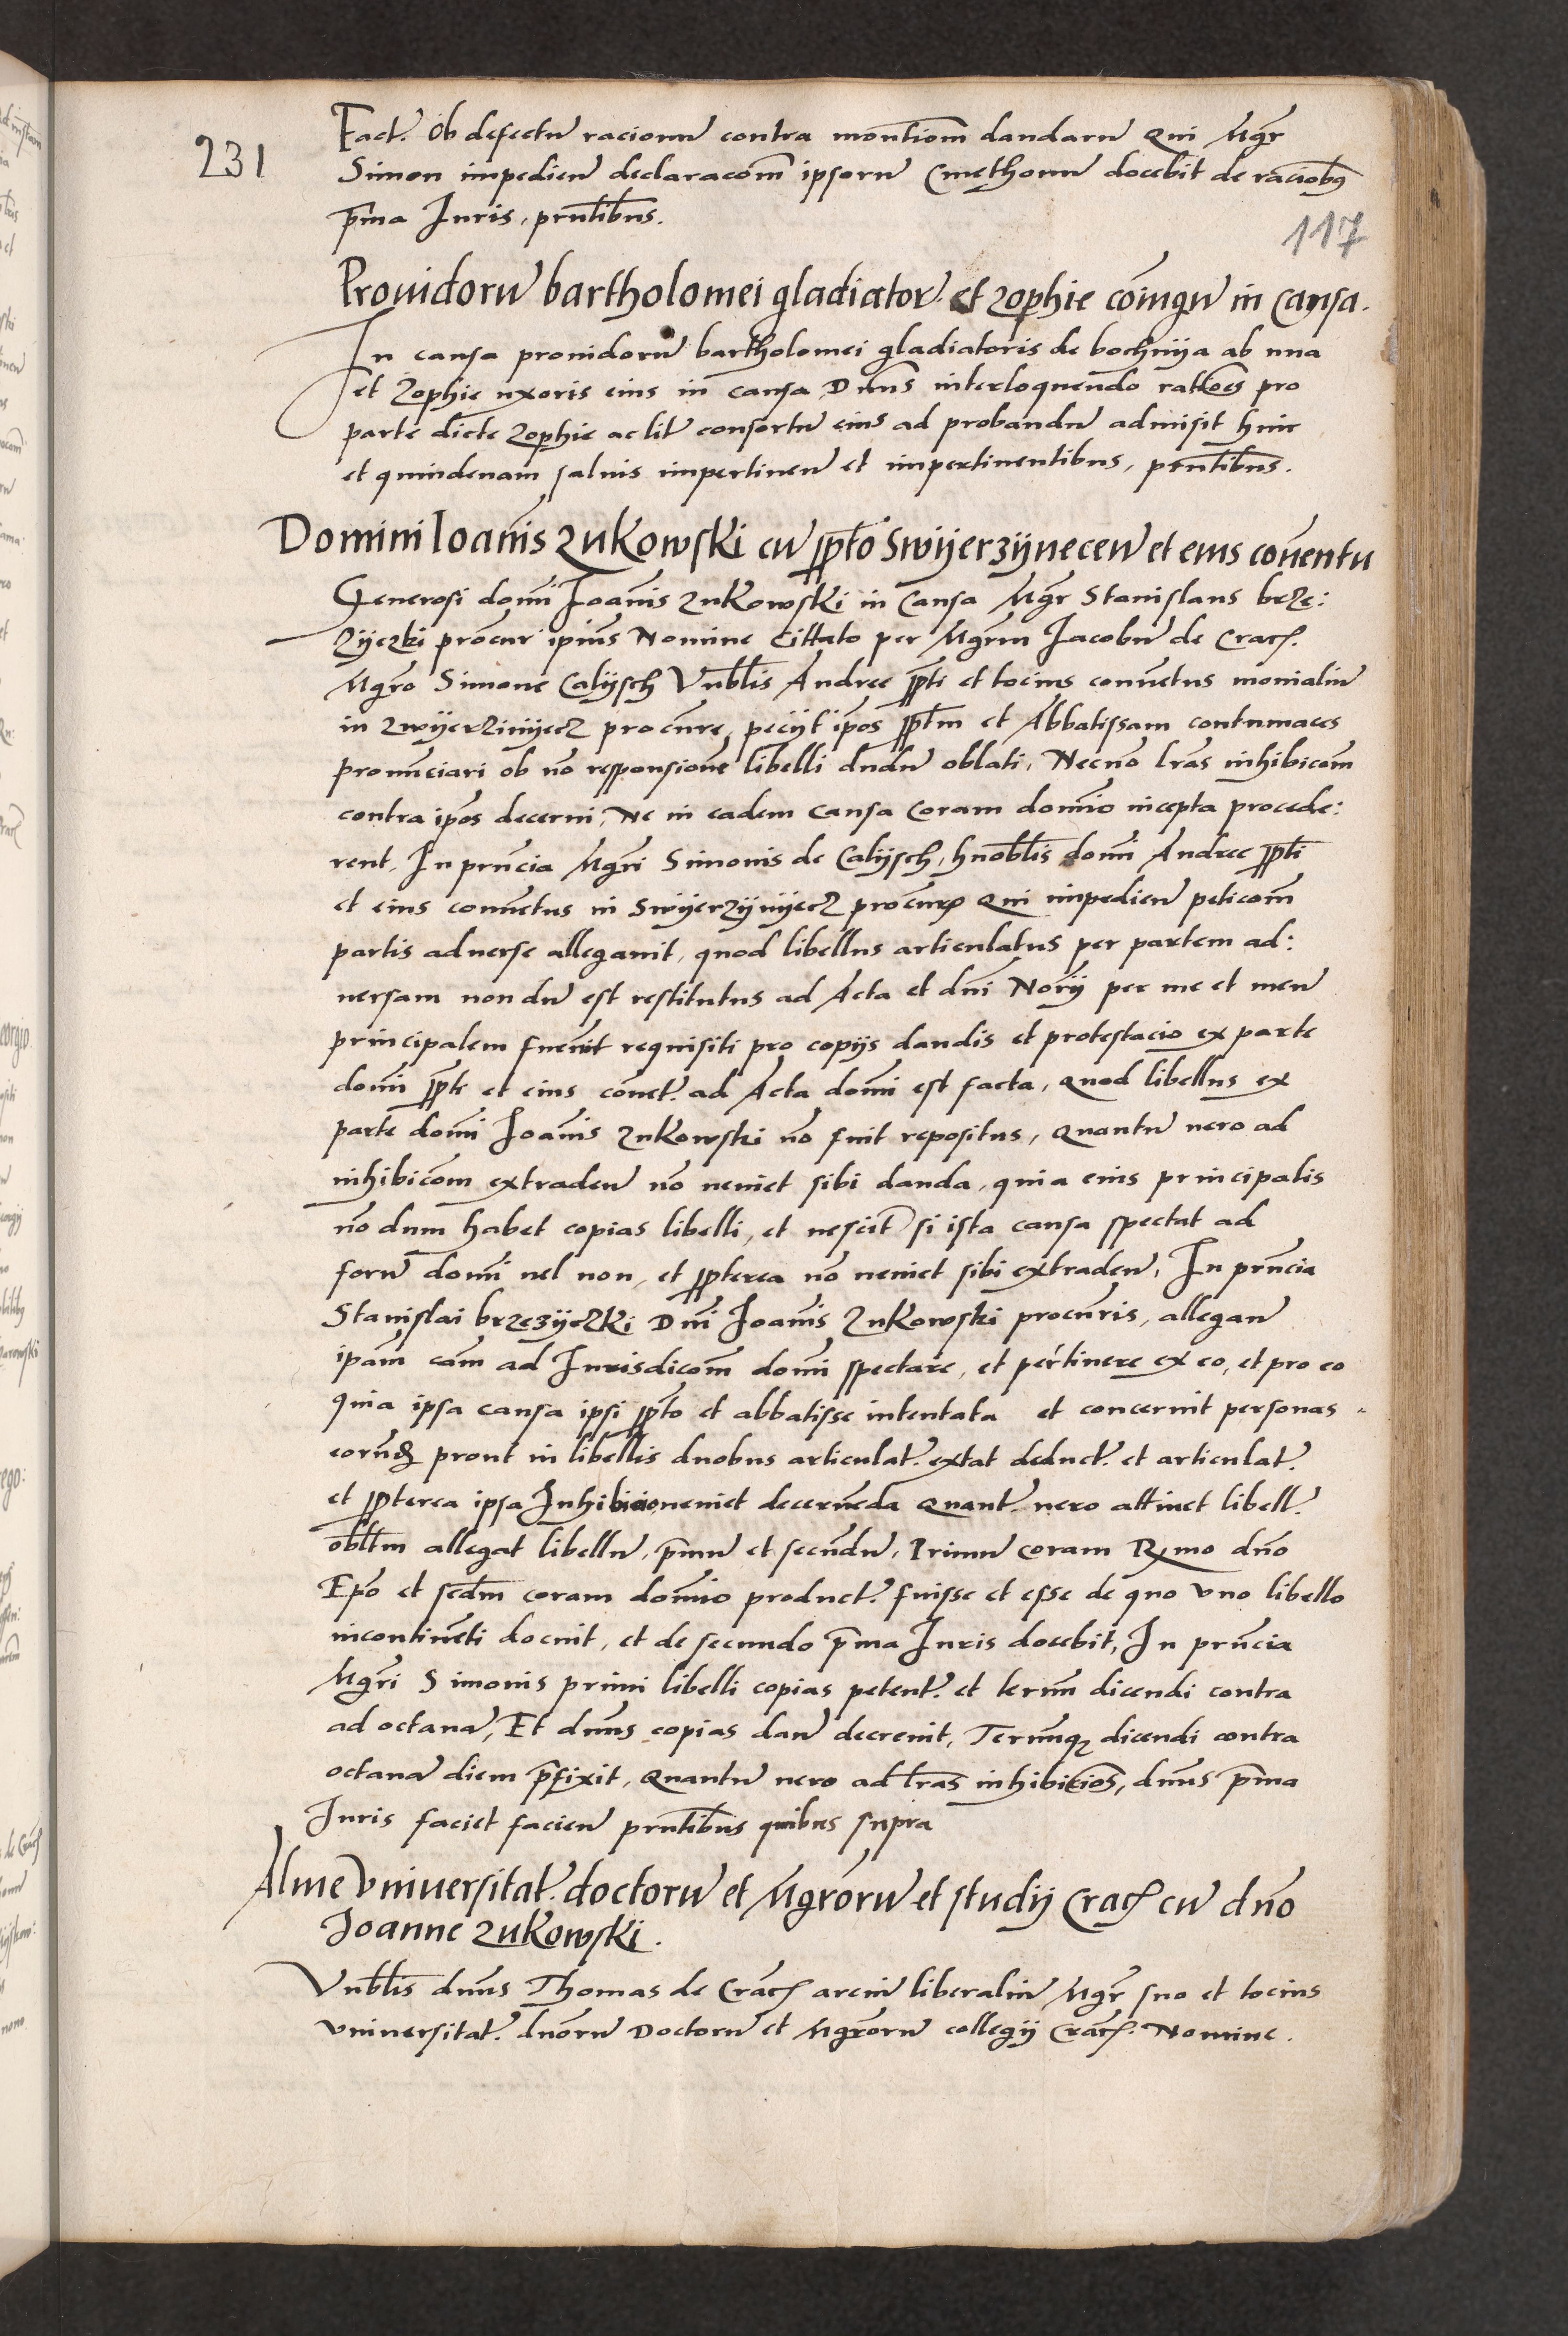 231
Fact. Ob defectu racionu contra montiom dandaru Qui Mgr
Simon impedien declaracom ipsoru Cmethonu docebit de raciobus
prima Iuris, prntibus.
117
Prouidoru bartholomei gladiator. et Zophie coniugu in Causa.
In causa prouidoru bartholomei gladiatoris de bochnija ab una
et Zophie uxoris eius in causa Dnus interloquendo rationes pro
parte dicte Zophie ac lit consortu eius ad probandu admisit hinc
et quindenam saluis impertinen et impertinentibus, prntibus.
Domini Ioanis Zukowski cu ppto Swijerzijnecen et eius couentu
Generosi domi Joanis Zukowski in Causa Mgr Stanislaus brze:
Zijczki procur ipius Nomine Cittato per Mgrm Jacobu de Crac.
Mgro Simone Calijsch Vnblis Andree ppti et tocius conuetus monialiu
in Zwijerzinijecz procure, pecijt ipos pptm et Abbatissam contumaces
pronunciari ob no responsione libelli dudu oblati, Necno lras inhibicom
contra ipos decerni, Ne in eadem causa coram domio incepta procede:
rent, In prncia Mgri Simonis de Calijsch, hnoblis domi Andree ppti
et eius conuetus in Swijerzijnijecz procurs Qui impedien peticom
partis aduerse allegauit, quod libellus articulatus per partem ad:
uersam non du est restitutus ad Acta et dni Norij per me et meu
principalem fuerit requisiti pro copijs dandis et protestacio ex parte
domi ppti et eius conet. ad Acta domi est facta, quod libellus ex
parte domi Joanis Zukowski no fuit repositus, Quantu uero ad
inhibicom extraden no ueniet sibi danda, quia eius principalis
no dum habet copias libelli, et nescit si ista causa spectat ad
foru domi uel non, et ppterea no ueniet sibi extraden, In prncia
Stanislai brzezijczki Dni Joanis Zukowski procuris, allegan
ipam cam ad Iurisdicom domi spectare, et pertinere ex eo, et pro eo
quia ipsa causa ipsi ppto et abbatisse intentata et concernit personas
eorunde prout in libellis duobus articulat. extat deduct. et articulat.
et ppterea ipsa Inhibicio ueniet decerneda Quant. uero attinet libell.
obltm allegat libellu, primu et secundu, Primu coram Rmo dno
Epo et secdm coram domio product. fuisse et esse de quo vno libello
incontineti docuit, et de secundo prima Iuris docebit, In prncia
Mgri Simonis primi libelli copias petent. et termi dicendi contra
ad octaua, Et dnus copias dan decreuit, Terminuque dicendi contra
octaua diem prfixit, Quantu uero ad lras inhibicios, dnus prima
Iuris faciet facien prntibus quibus supra
Alme Vniuersitat. doctoru et Mgroru et studij Crac cu dno
Joanne Zukowski.
Vnblis dnus Thomas de Crac arciu liberaliu Mgr suo et tocius
vniuersitat. dnoru Doctoru et Mgroru collegij Crac. Nomine.